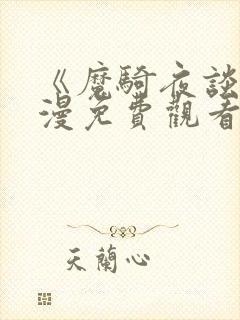 《魔騎夜談
漫免費觀看
天蘭心